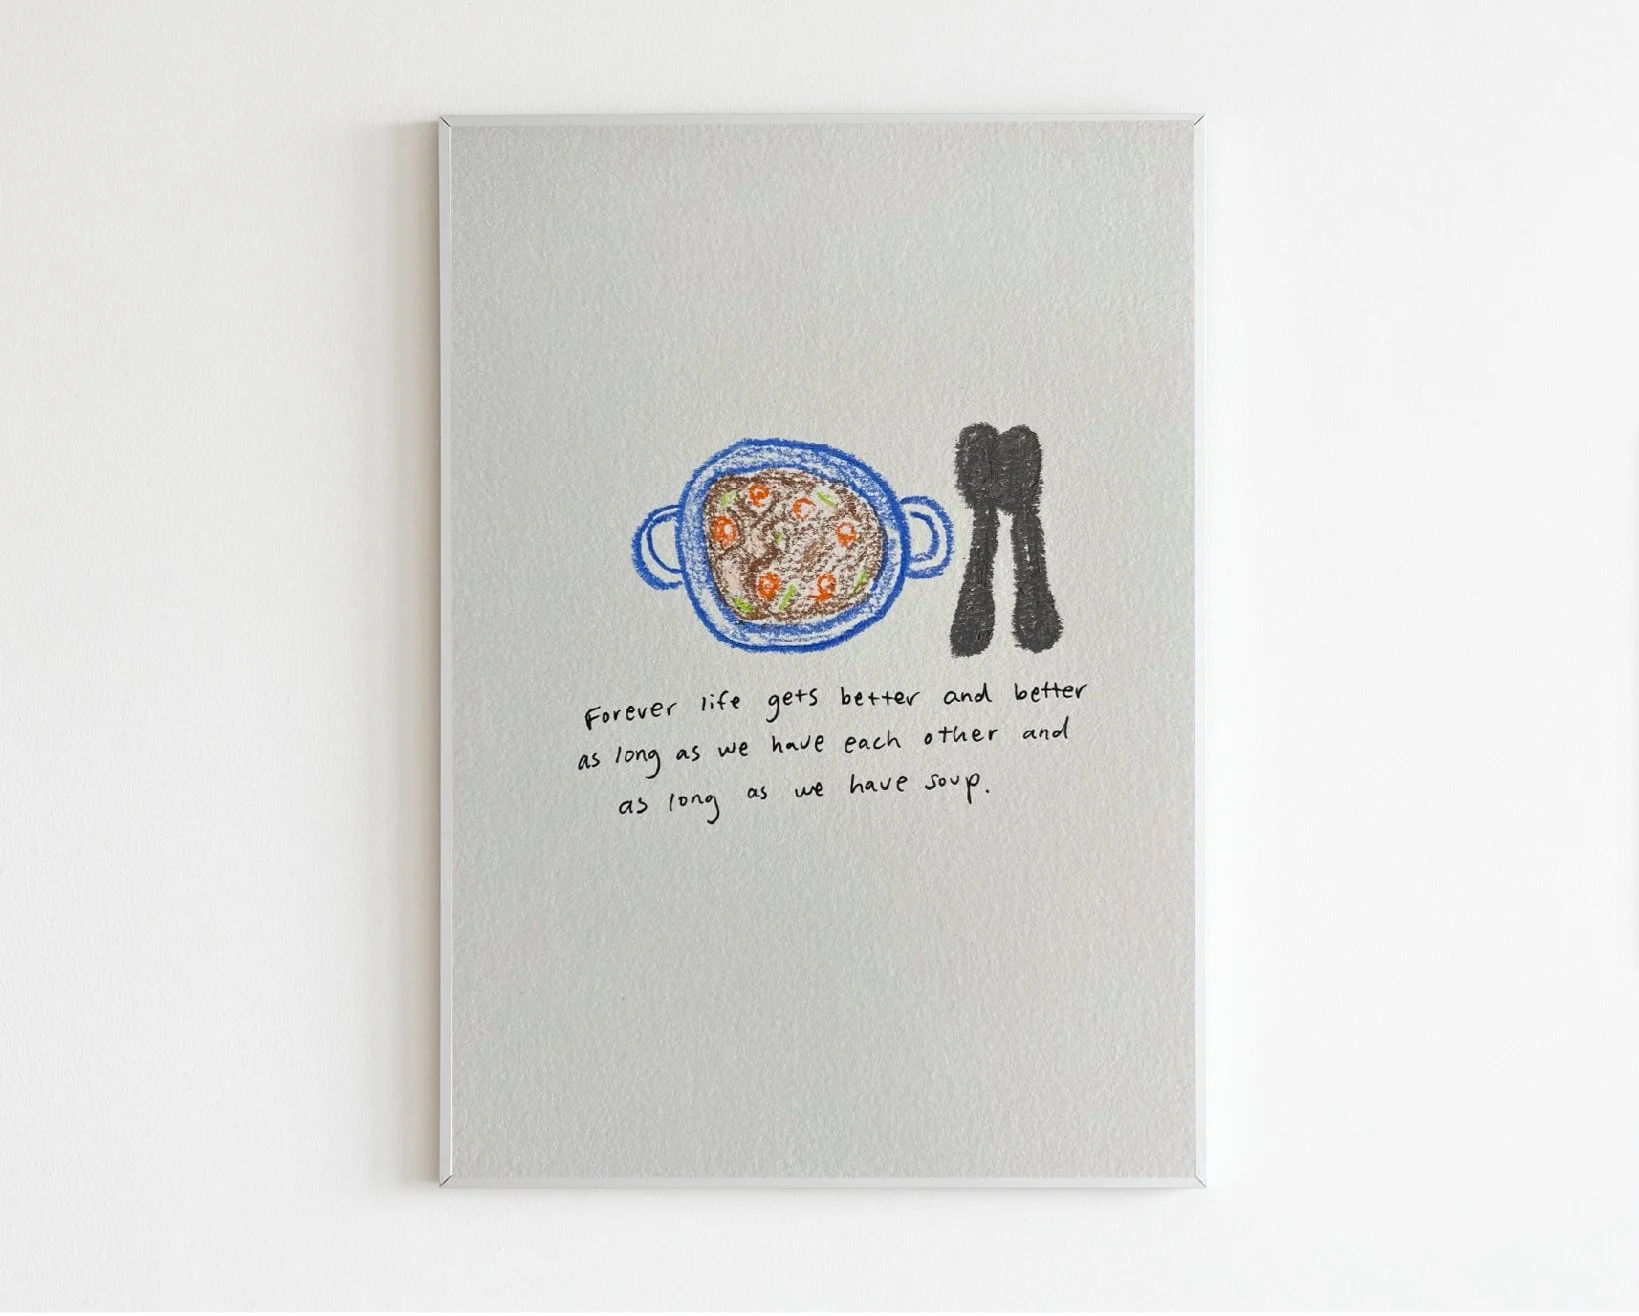 Forever life gets better and better
as long as we have each other and
as long as we have soup.